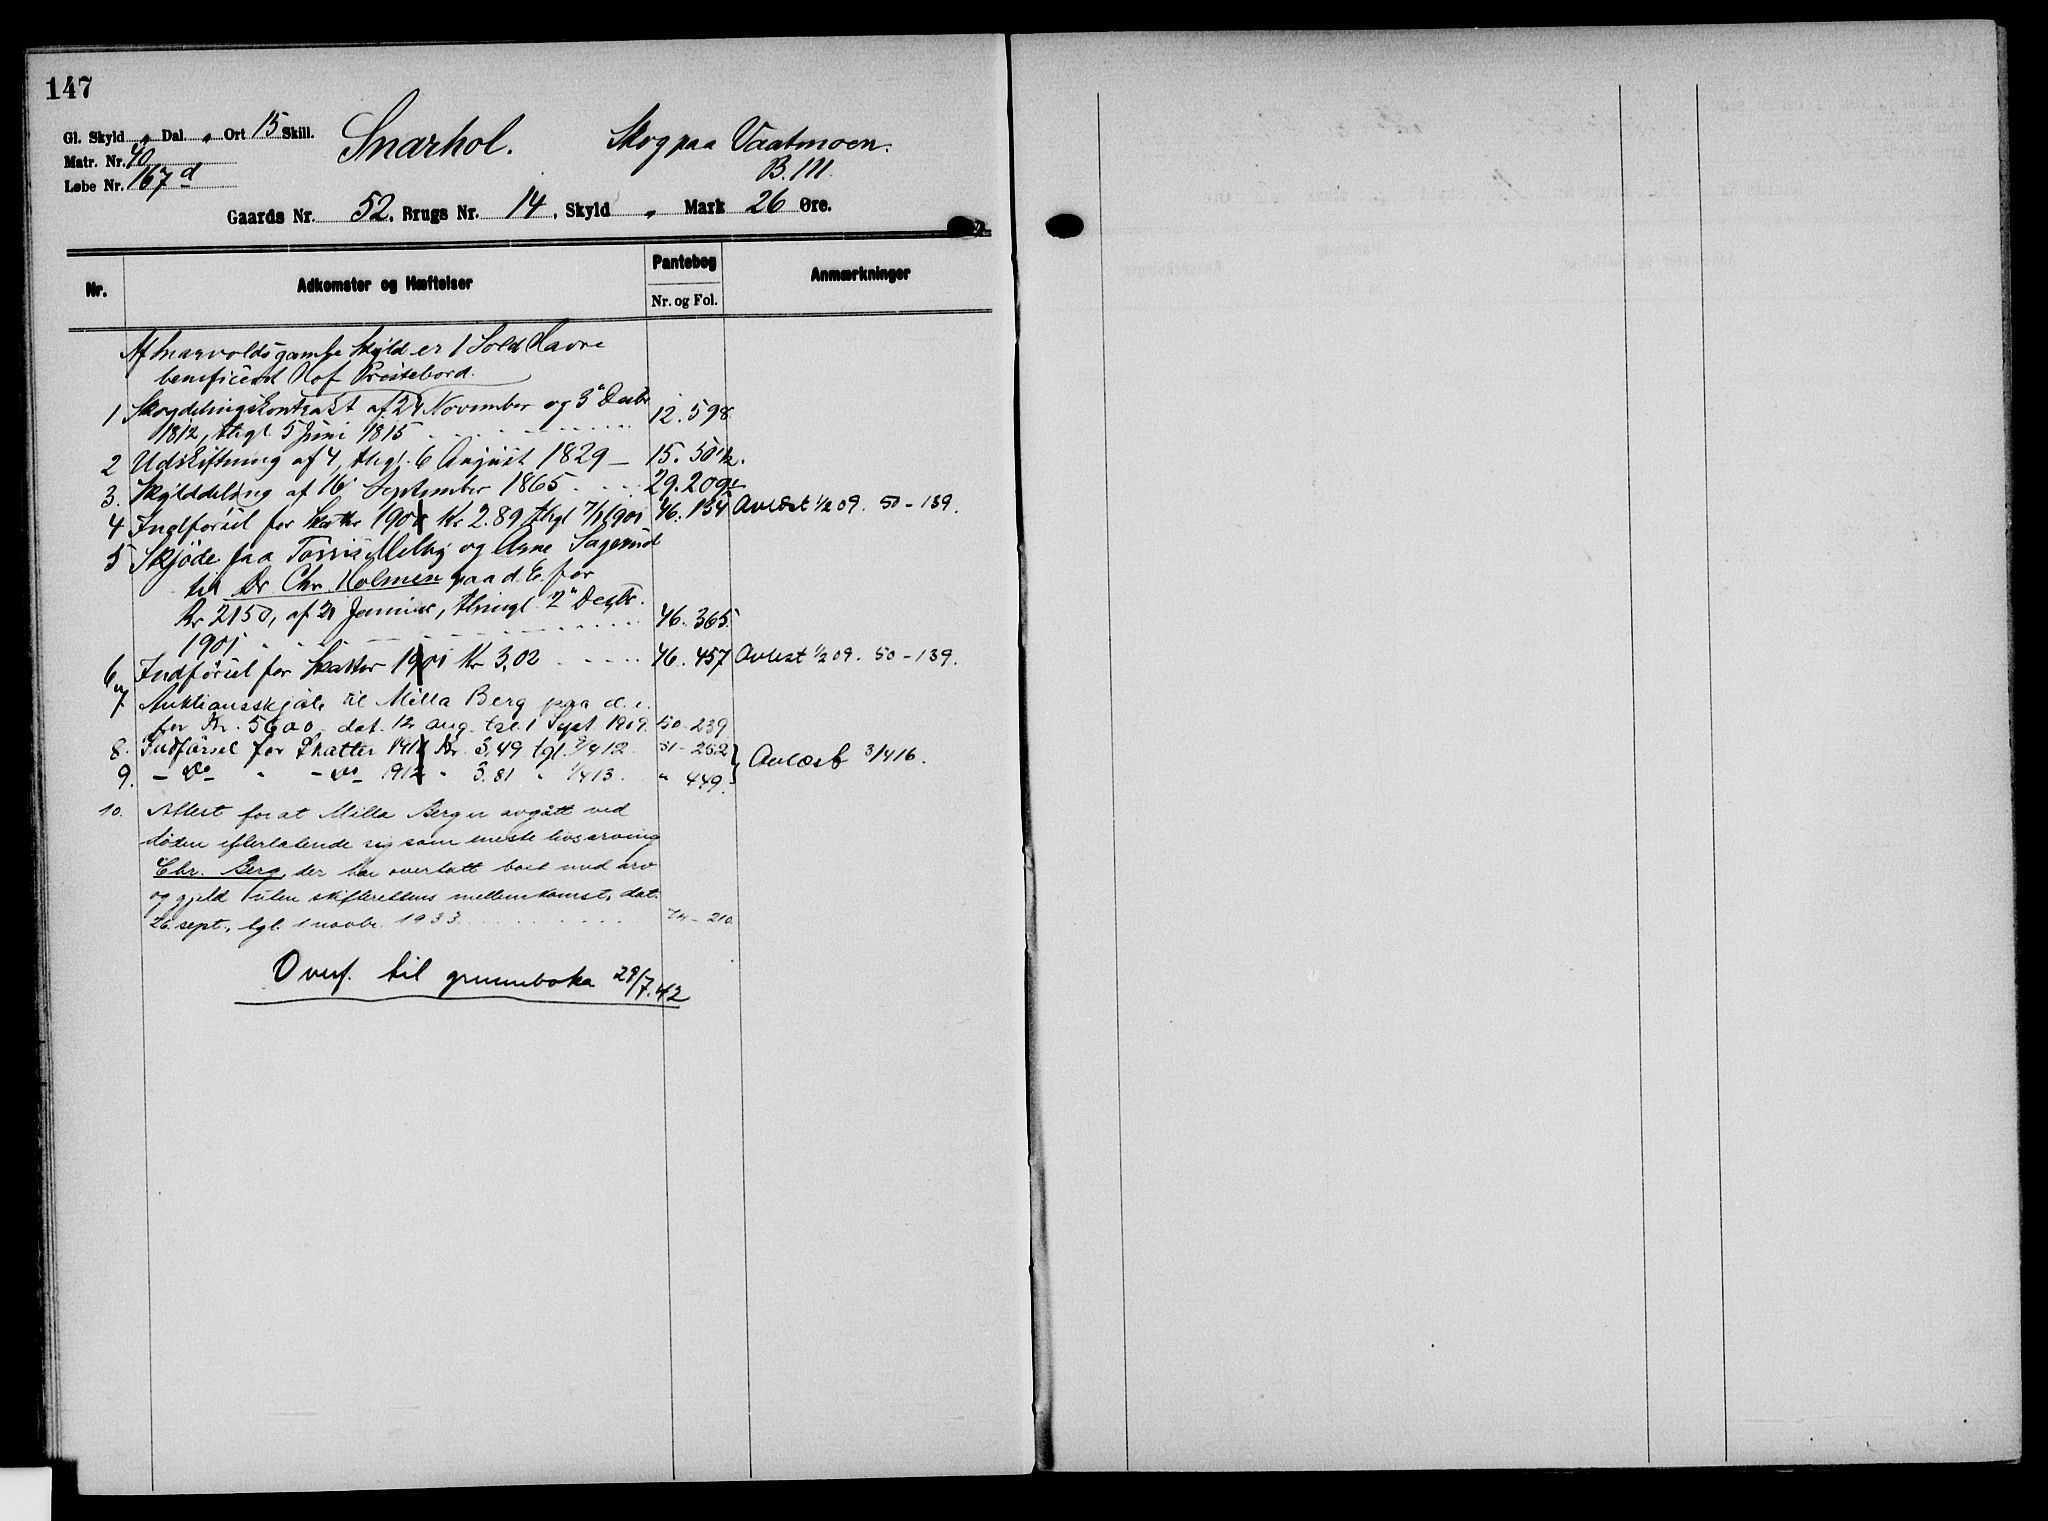 147
Gl. Skyld „ Dal. „ Ort 15 Skill. Snarhol. Skog paa Vaatmoen.
Matr. Nr. 40 B. 111.
Løbe Nr. 167 d
Gaards Nr. 52, Brugs Nr. 14, Skyld „ Mark 26 Øre.
Nr. Adkomster og Hæftelser Pantebog Anmærkninger
Nr. og Fol.
Af Snarvolds gamle Skyld er 1 Sold Havre
benificeret Hof Prestebord.
1 Skogdelingskontrakt af 24 November og 3" Decbr 12. 598.
1812, thgl. 5 Juni 1815
2 Udskiftning af 4, thgl. 6 August 1829 — 15. 50 1/2.
3. Skylddeling af 16 September 1865 29. 209
4 Indførsel for Skatter 1900 Kr 2.89 thgl 7/1 1901 46. 134 Avlæst 1/2 09. 50 - 139.
5 Skjøde fra Tarris Melby og Arne Sagerud
til Dr Chr. Holmen paa d. E. for
Kr 2150, af 21 Januar, thingl. 2" Decbr. 46. 365.
1901
6 Indførsel for Skatter 1901 Kr 3,02 46. 457 Avlæst 1/2 09. 50 - 139.
7 Auktionsskjøte til Milla Berg paa d. e.
for Kr. 5600, dat. 12 aug. tgl. 1 Sept 1909. 50 - 239
8. Indførsel for Skatter 1911 Kr. 3,49 tgl. 9/4 12. 51 - 252 } Avlæst 3/4 16.
9. — Do — „ — Do — 1912 „ 3.81 „ 1/4 13. „ 449.
10. Attest for at Milla Berg er avgått ved
døden efterlatende sig som eneste livsarving
Chr. Berg, der har overtatt boet med arv
og gjeld uten skifterettens mellemkomst, dat.
26. sept., tgl. 1 novbr. 1933. 74 - 210.
Overf. til grunnboka 29/7.42